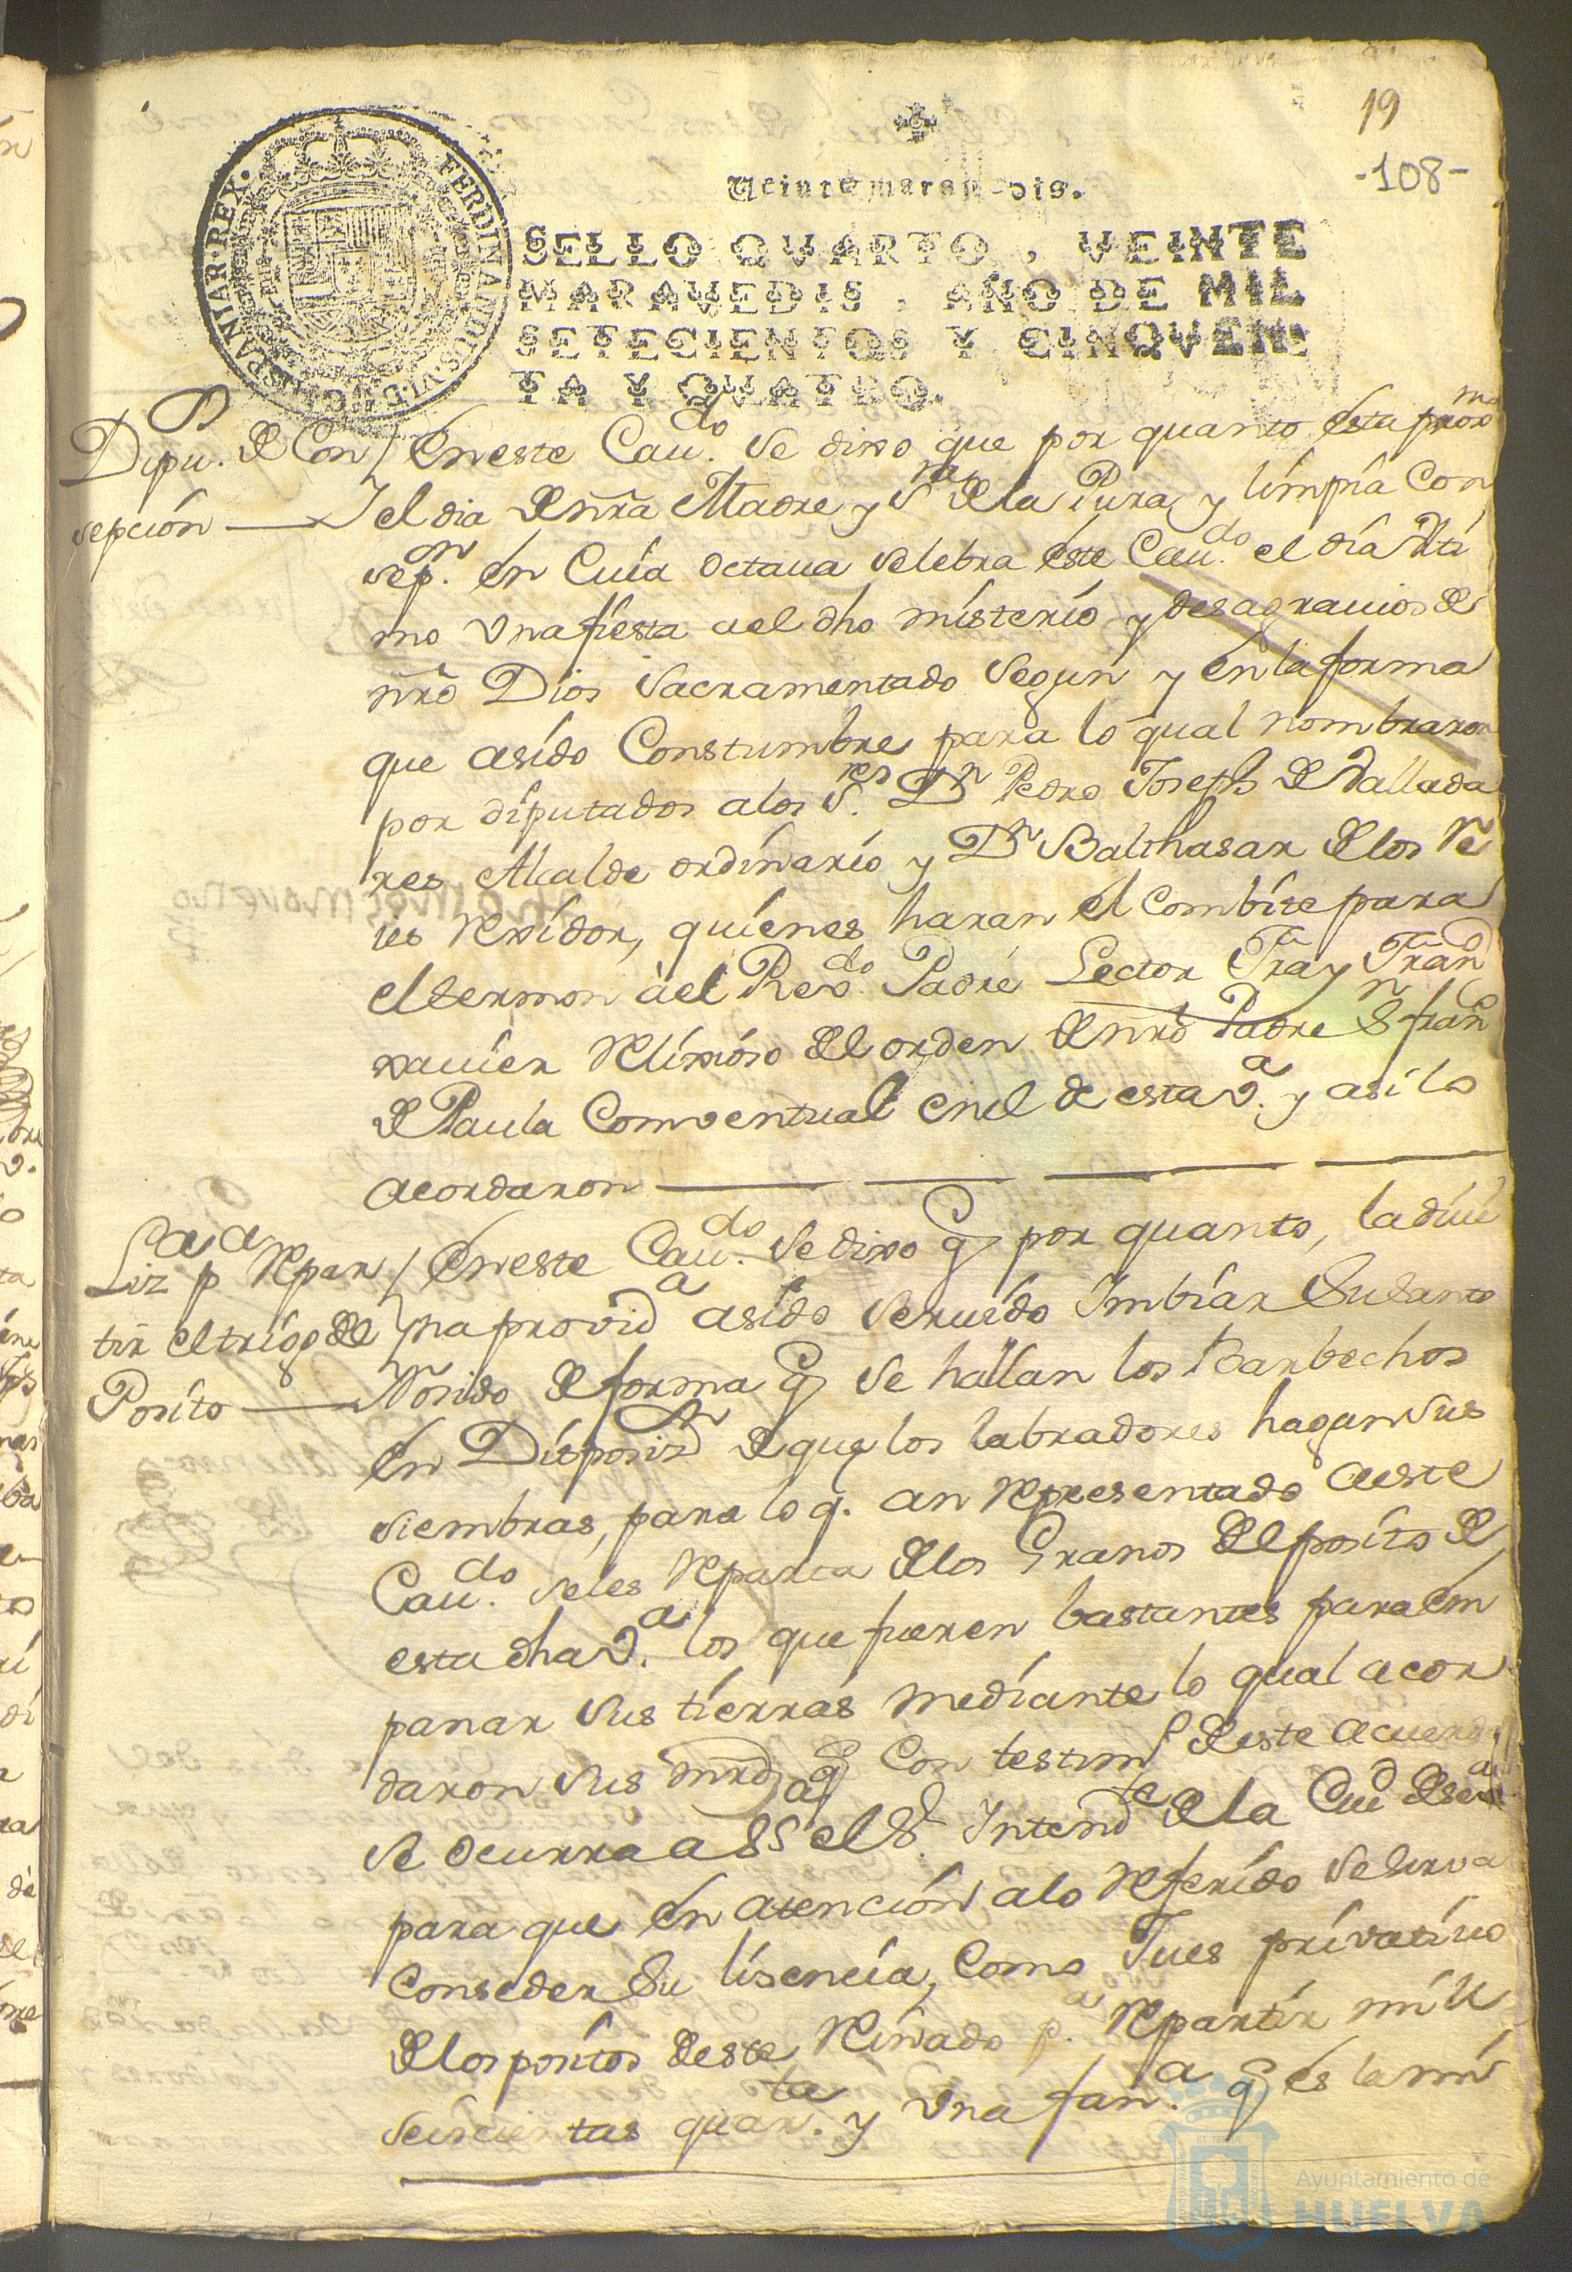 19
-108-
Veinte maravedis.
SELLO QVARTO, VEINTE
MARAVEDIS, AÑO DE MIL
SETECIENTOS Y CINQVEN
TA Y QVATRO.
FERDINANDUS·VI·D·G·HISPANIAR·REX·
Dipu. de Con / En este Cau.do se dixo que por quanto esta proxmo
sepción — el dia de nrã Madre y S.ra de la Pura y limpia Con
sep.on en Cuia octaua selebra este Cau.do el dia vlti
mo vna fiesta ael dho misterio y desagrauios de
nrõ Dios Sacramentado segun y en la forma
que asido Constumbre para lo qual nombraron
por diputados alos S.res Dn Pedro Joseph de Vallada
res Alcalde ordinario y Dn Balthasar de los Re
ies Rexidor, quienes haran el combite para
el sermon àel Rev.do Padre Lector Fray Franco
xauier Relixioso del orden de nrõ Padre Sn franco
de Paula Comventual en el de esta v.a y asi lo
acordaron
Liza pa Repar / En este Cau.do se dixo q por quanto, la diui
tir el trigo del na provida asido seruido Imbiar su santo
Posito — Rosido de forma q se hallan los Barbechos
en Disposizn de que los labradores hagan sus
siembras, para lo q. an Representado a este
Cau.do seles Reparta de los Granos del posito de
esta dha v.a los que fueren bastantes para em
panar sus tierras mediante lo qual acor
daron sus mrds q Con testimo de este acuerdo
se ocurra a SS.a el Sr. Intendte de la Ciud de Seva
para que en atención alo Referido se sirva
Conseder su lisencia, Como Jues privatiuo
de los positos de este Reinado p.a Repartir mill
seiscientas quar.ta y vna fan.a q es la mi
Ayuntamiento de
HUELVA